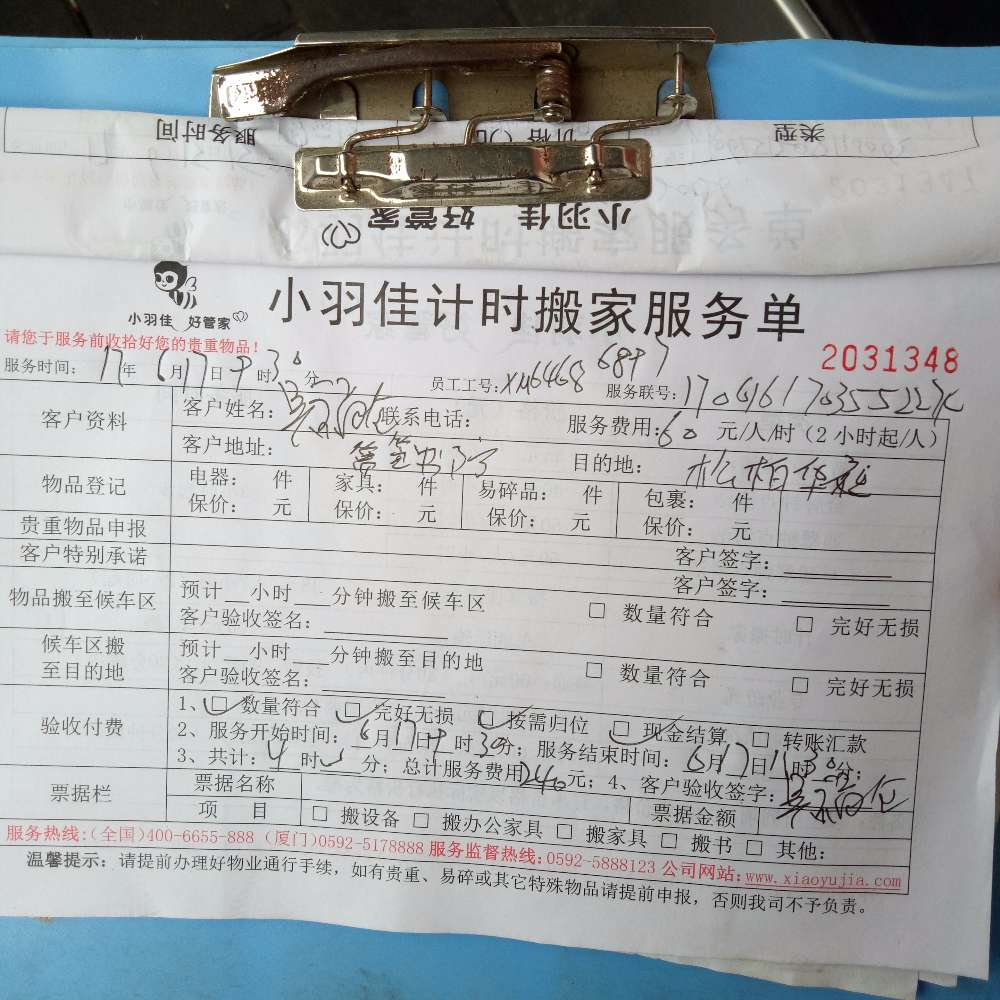 服务时间 价格(元 类型
小羽佳 好管家
小羽佳 好管家
小羽佳计时搬家服务单
请您于服务前收拾好您的贵重物品!
2031348
服务时间: 17年 6月17日9时30分 员工工号: XM6468 6897 服务联号:
客户资料 客户姓名: 联系电话: 服务费用: 60 元/人/时(2小时起/人)
客户地址: 筼筜书院 目的地: 松柏华庭
物品登记 电器: 件 家具: 件 易碎品: 件 包裹: 件
保价: 元 保价: 元 保价: 元 保价: 元
贵重物品申报 客户签字:
客户特别承诺 客户签字:
物品搬至候车区 预计__小时___分钟搬至候车区 □ 数量符合 □ 完好无损
客户验收签名:
候车区搬至目的地 预计__小时___分钟搬至目的地 □ 数量符合 □ 完好无损
客户验收签名:
验收付费 1、☑ 数量符合 ☑ 完好无损 ☑ 按需归位 ☑ 现金结算 □ 转账汇款
2、服务开始时间: 6月17日9时30分; 服务结束时间: 6月17日11时30分;
3、共计: 4时 分; 总计服务费用240元; 4、客户验收签字:
票据栏 票据名称 票据金额
项 目 □ 搬设备 □ 搬办公家具 □ 搬家具 □ 搬书 □ 其他:
服务热线:(全国)400-6655-888 (厦门)0592-5178888 服务监督热线:0592-5888123 公司网站:www.xiaoyujia.com
温馨提示: 请提前办理好物业通行手续, 如有贵重、易碎或其它特殊物品请提前申报, 否则我司不予负责。